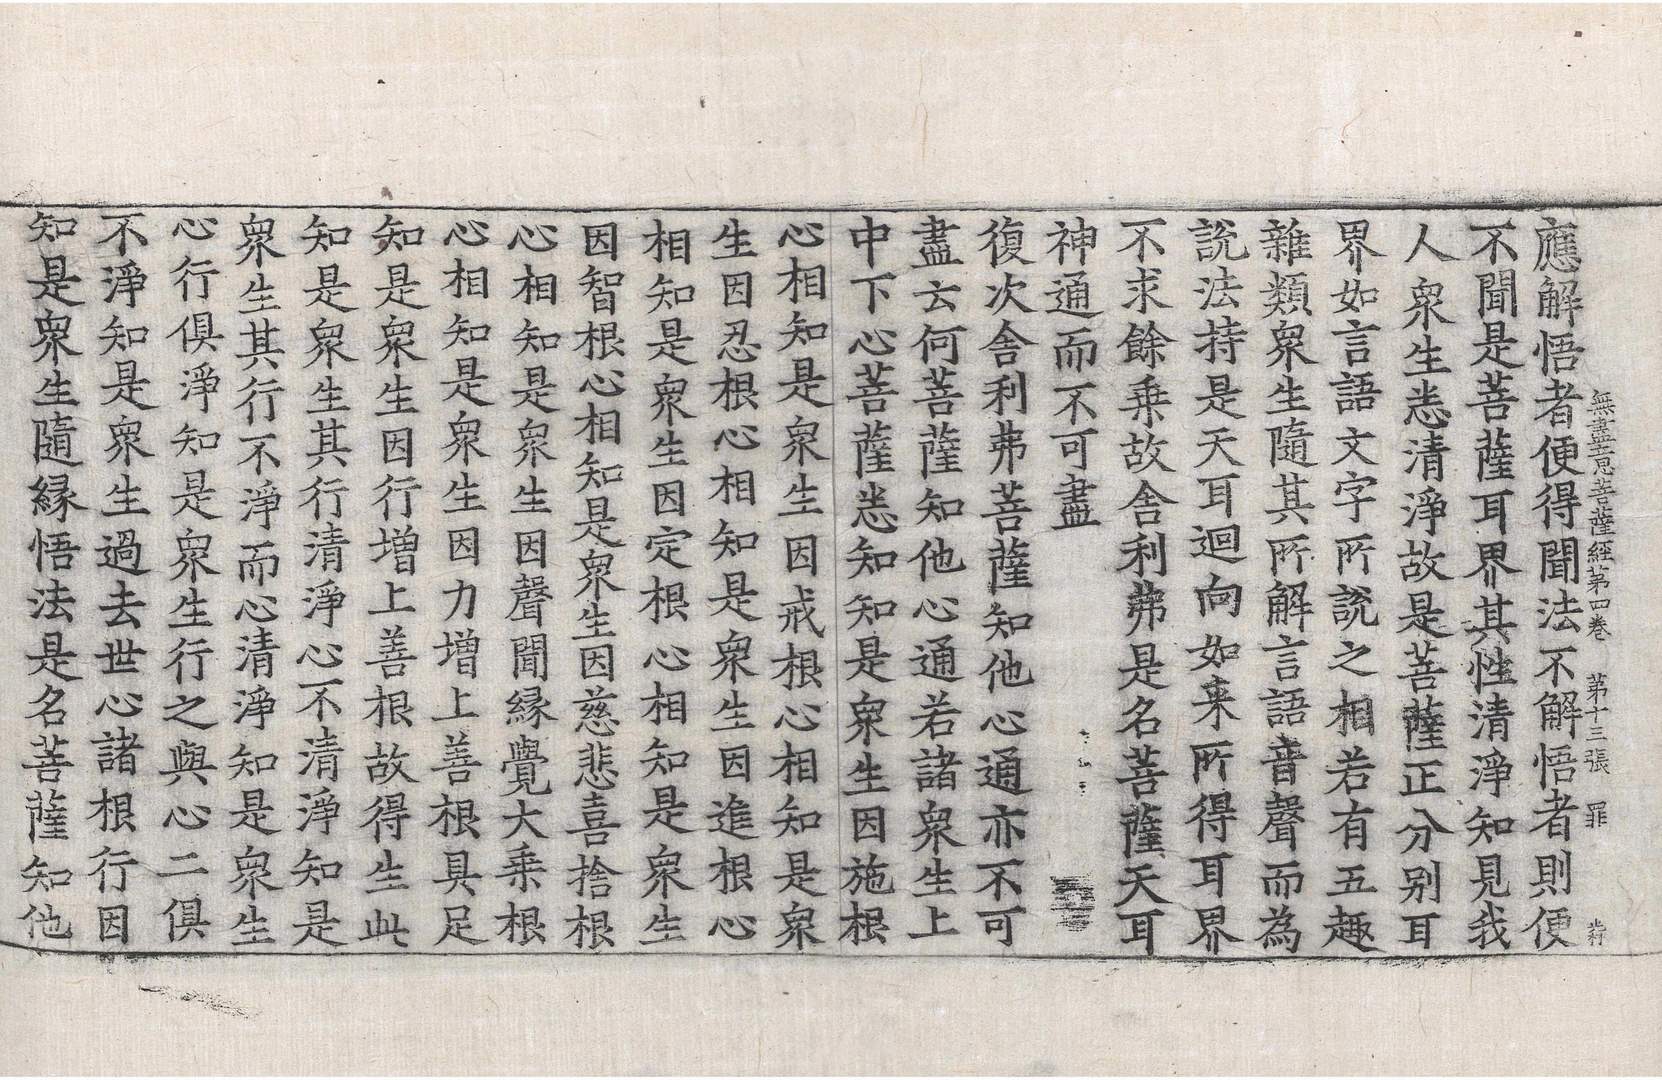 無盡意菩薩經第四卷　第十三張　罪
應解悟者便得聞法不解悟者則便
不聞是菩薩耳界其性清淨知見我
人衆生恙清淨故是菩薩正分别耳
界如言語文字所說之相若有五趣
雜類衆生隨其所解言語音聲而為
說法持是天耳迴向如来所得耳界
不求餘乗故舍利弗是名菩薩天耳
神通而不可盡
復次舍利弗菩薩知他心通亦不可
盡云何菩薩知他心通若諸衆生上
中下心菩薩悉知知是衆生因施根
心相知是衆生因戒根心相知是衆
生因忍根心相知是衆生因進根心
相知是衆生因定根心相知是衆生
因智根心相知是衆生因慈悲喜捨根
心相知是衆生因聲聞緣覺大乗根
心相知是衆生因力增上善根具足
知是衆生因行增上善根故得生此
知是衆生其行清淨心不清淨知是
衆生其行不淨而心清淨知是衆生
心行俱淨知是衆生行之與心二俱
不淨知是衆生過去世心諸根行因
知是衆生隨緣悟法是名菩薩知他